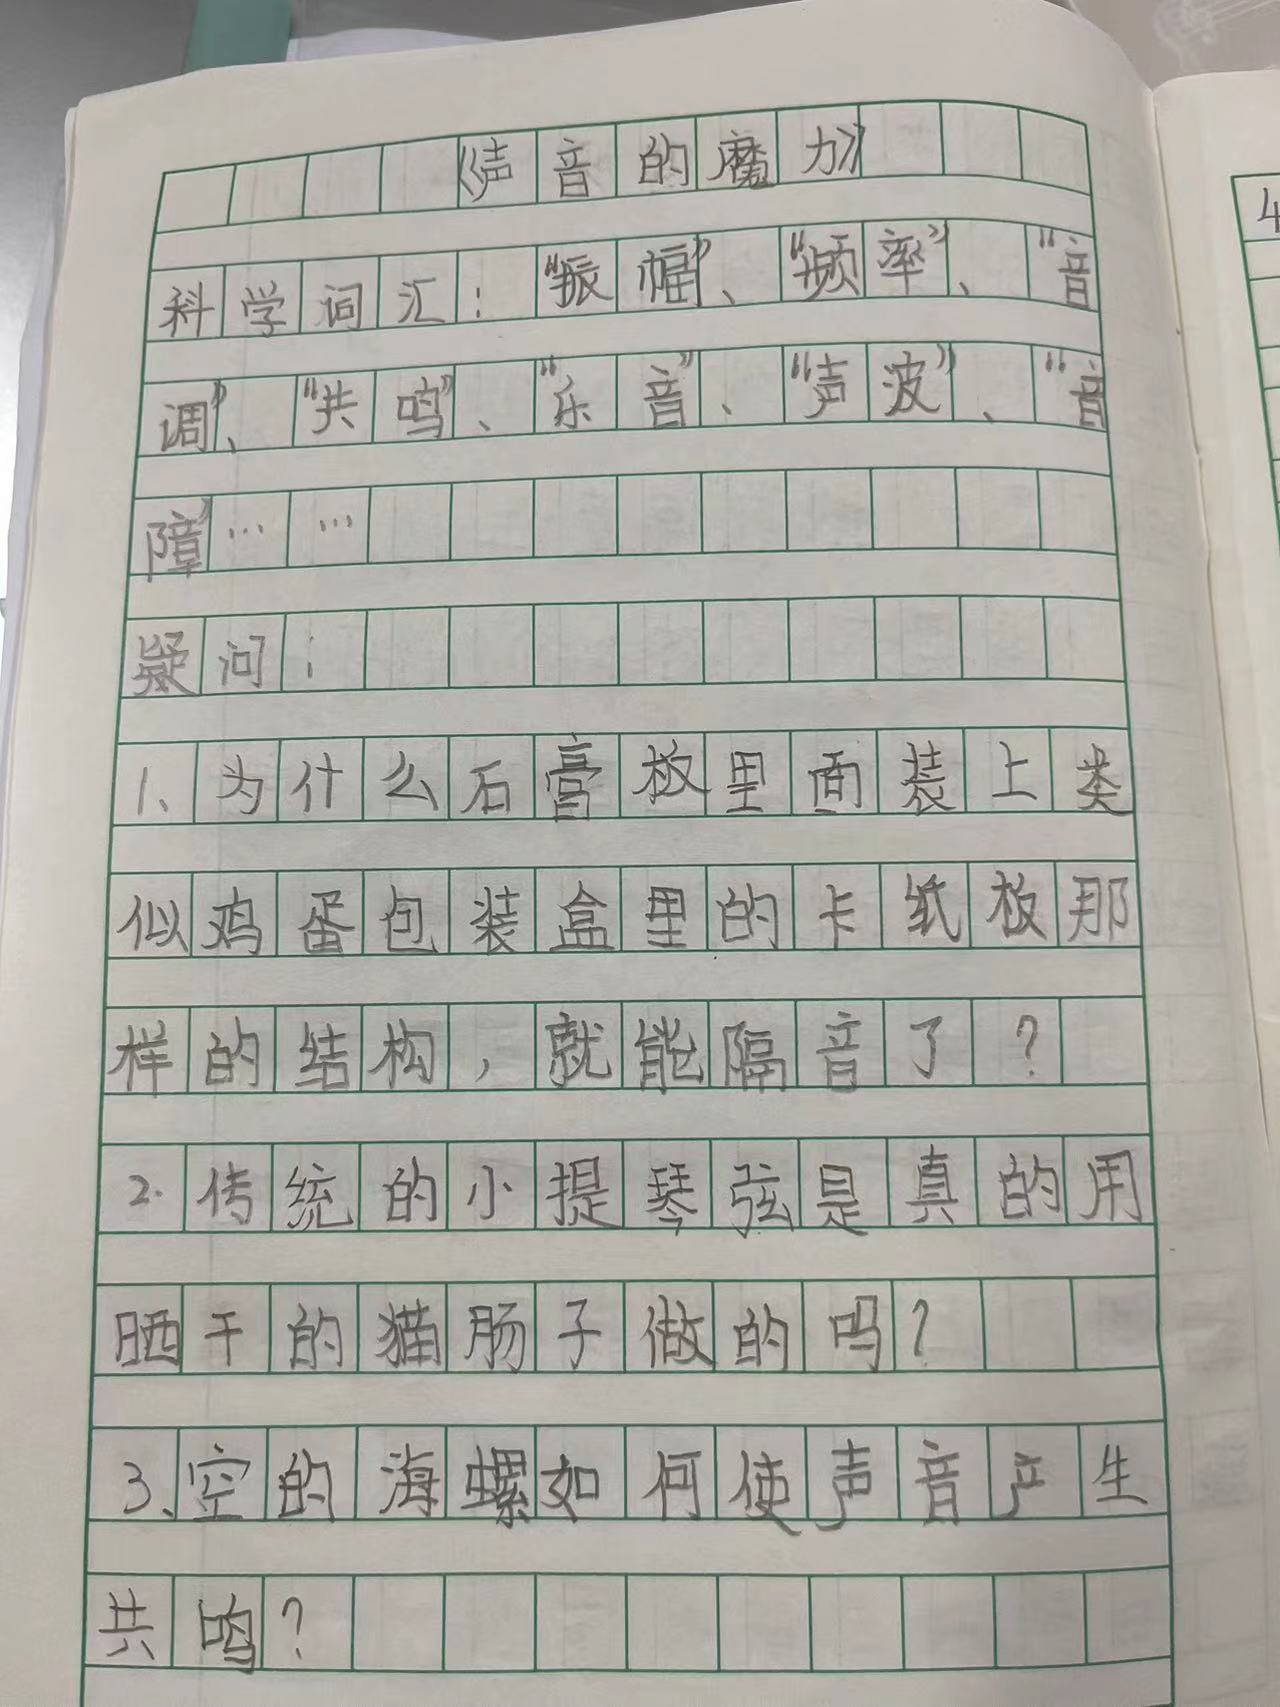 《声音的魔力》
科学词汇："振幅"、"频率"、"音
调"、"共鸣"、"乐音"、"声波"、"音
障"……
疑问：
1、为什么石膏板里面装上类
似鸡蛋包装盒里的卡纸板那
样的结构，就能隔音了？
2.传统的小提琴弦是真的用
晒干的猫肠子做的吗？
3、空的海螺如何使声音产生
共鸣？
4